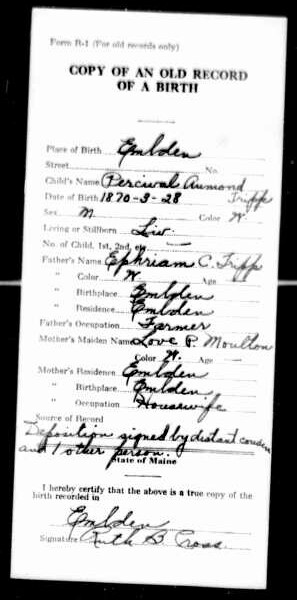 Form R-1 (For old records only)
COPY OF AN OLD RECORD
OF A BIRTH
Place of Birth Embden
Street No.
Child's Name Percival Aumond
Tripp
Date of Birth 1870-3-28
Sex M Color W.
Living or Stillborn Liv.
No. of Child, 1st, 2nd, etc. —
Father's Name Ephriam C. Tripp
" Color W. Age —
" Birthplace Embden
" Residence Embden
Father's Occupation Farmer
Mother's Maiden Name Love P. Moulton
Color W. Age —
Mother's Residence Embden
" Birthplace Embden
" Occupation Housewife
Source of Record
Deposition signed by distant cousin
and 1 other person.
State of Maine
I hereby certify that the above is a true copy of the
birth recorded in
Embden
Signature Ruth B Cross.